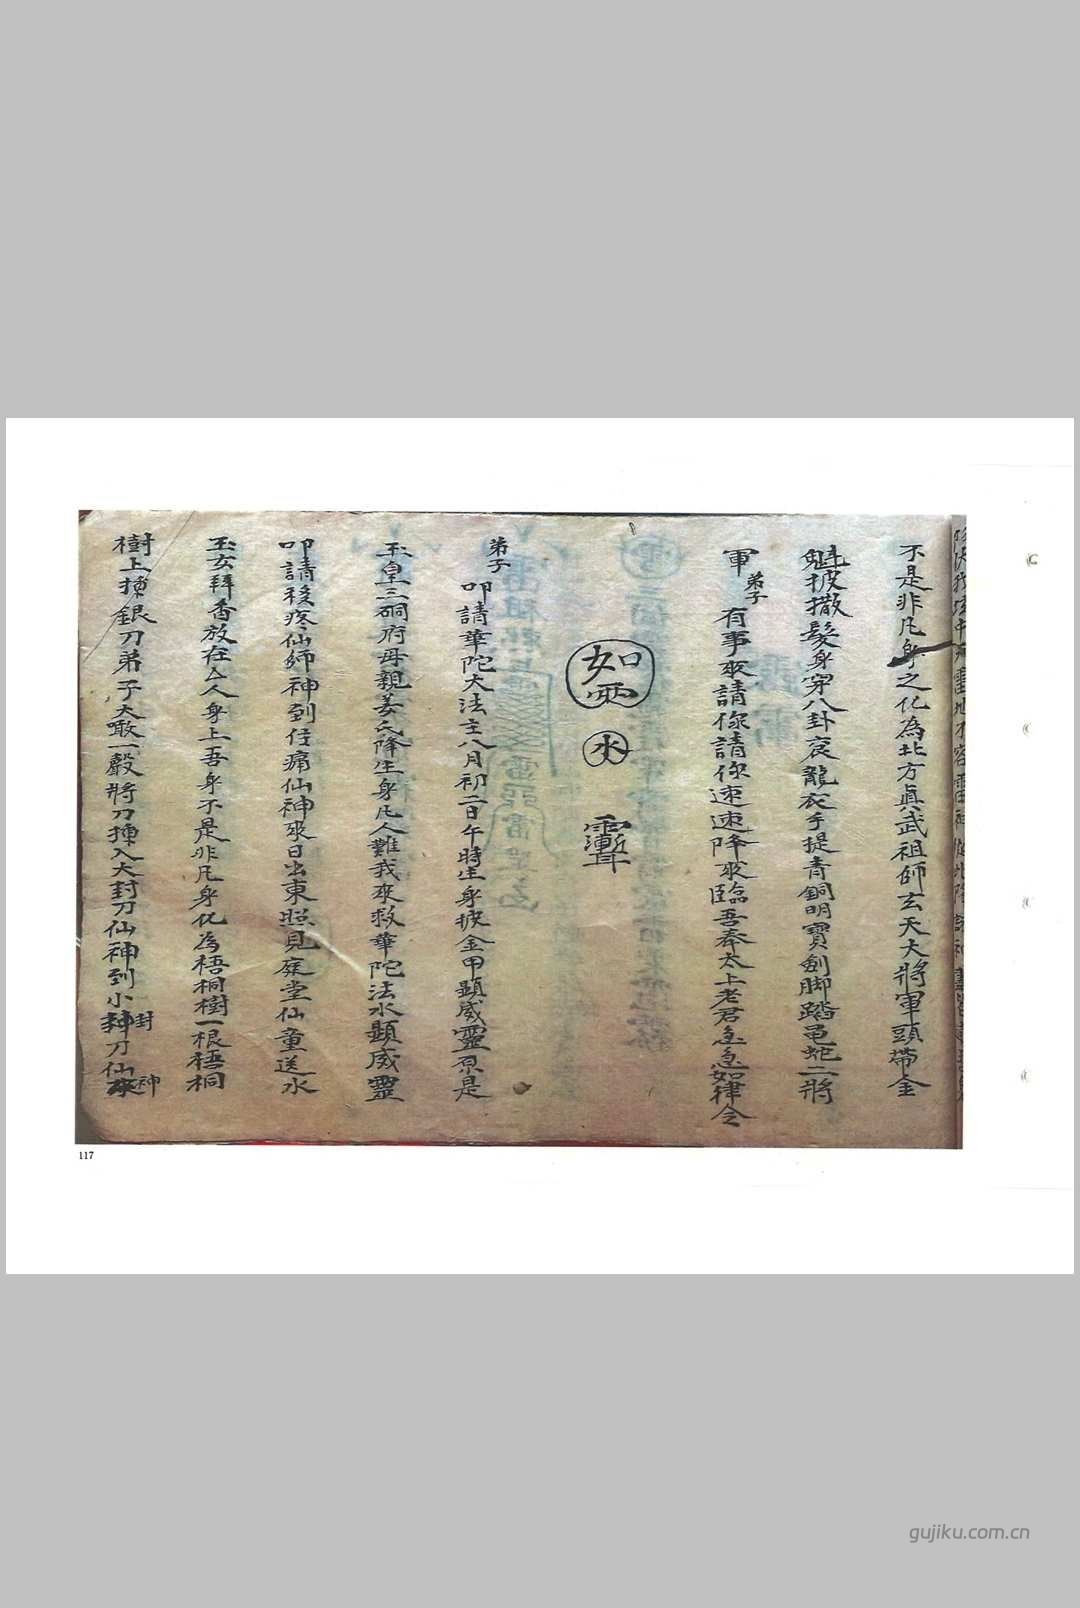 不是非凡身之化為北方真武祖師玄天大將軍頭帶金
魁披撒髮身穿八卦衮龍衣手提青銅明寶劍脚踏黾蛇二將
軍弟子有事來請你請你速速降來臨吾奉太上老君急急如律令
如
水
弟子叩請華陀大法主八月初二日午時生身披金甲顕威靈原是
玉皇三硐府母親姜氏降生身凡人難我來救華陀法水顕威靈
叩請移疼仙師神到住痛仙神來日出東照見庭堂仙童送水
玉女拜香放在人身上吾身不是非凡身化為梧桐樹一根梧桐
樹上揀銀刀弟子大噉一殸將刀揀入大封刀仙神到小封刀仙神來
117
gujiku.com.cn